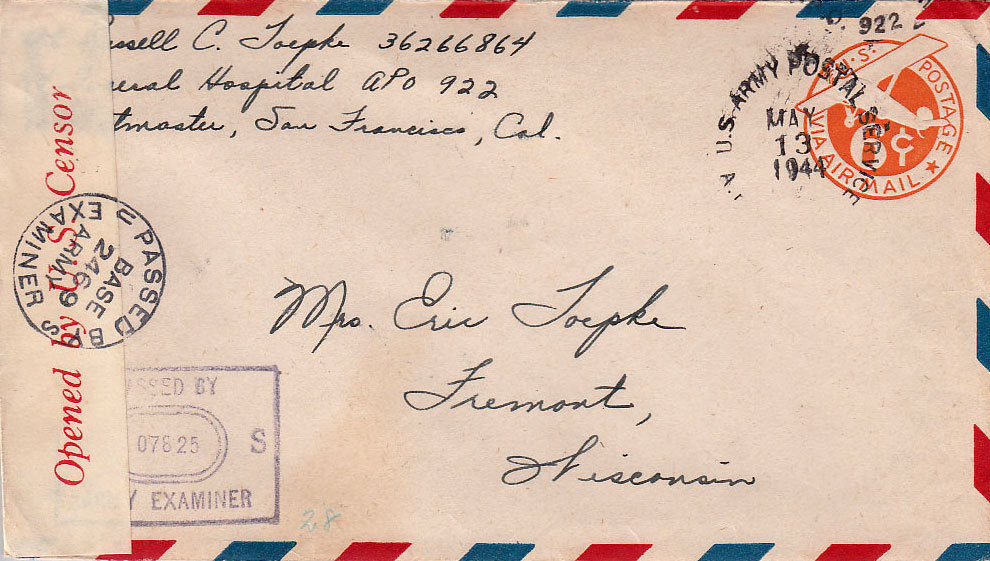 ssell C. Toepke 36266864
neral Hospital APO 922
tmaster, San Francisco, Cal.
922
U.S. ARMY POSTAL SERVICE
MAY
13
1944
U.S. POSTAGE
6¢
VIA AIR MAIL
Opened by U.S. Censor
PASSED BY
BASE
2469
ARMY
EXAMINER S
Mrs. Eric Toepke
Fremont,
Wisconsin
ASSED BY
07825 S
Y EXAMINER
28